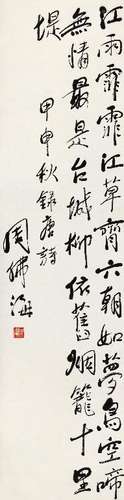 江雨霏霏江草齊六朝如夢鳥空啼
無情最是台城柳依舊烟籠十里
堤
甲申秋錄唐詩
周佛海